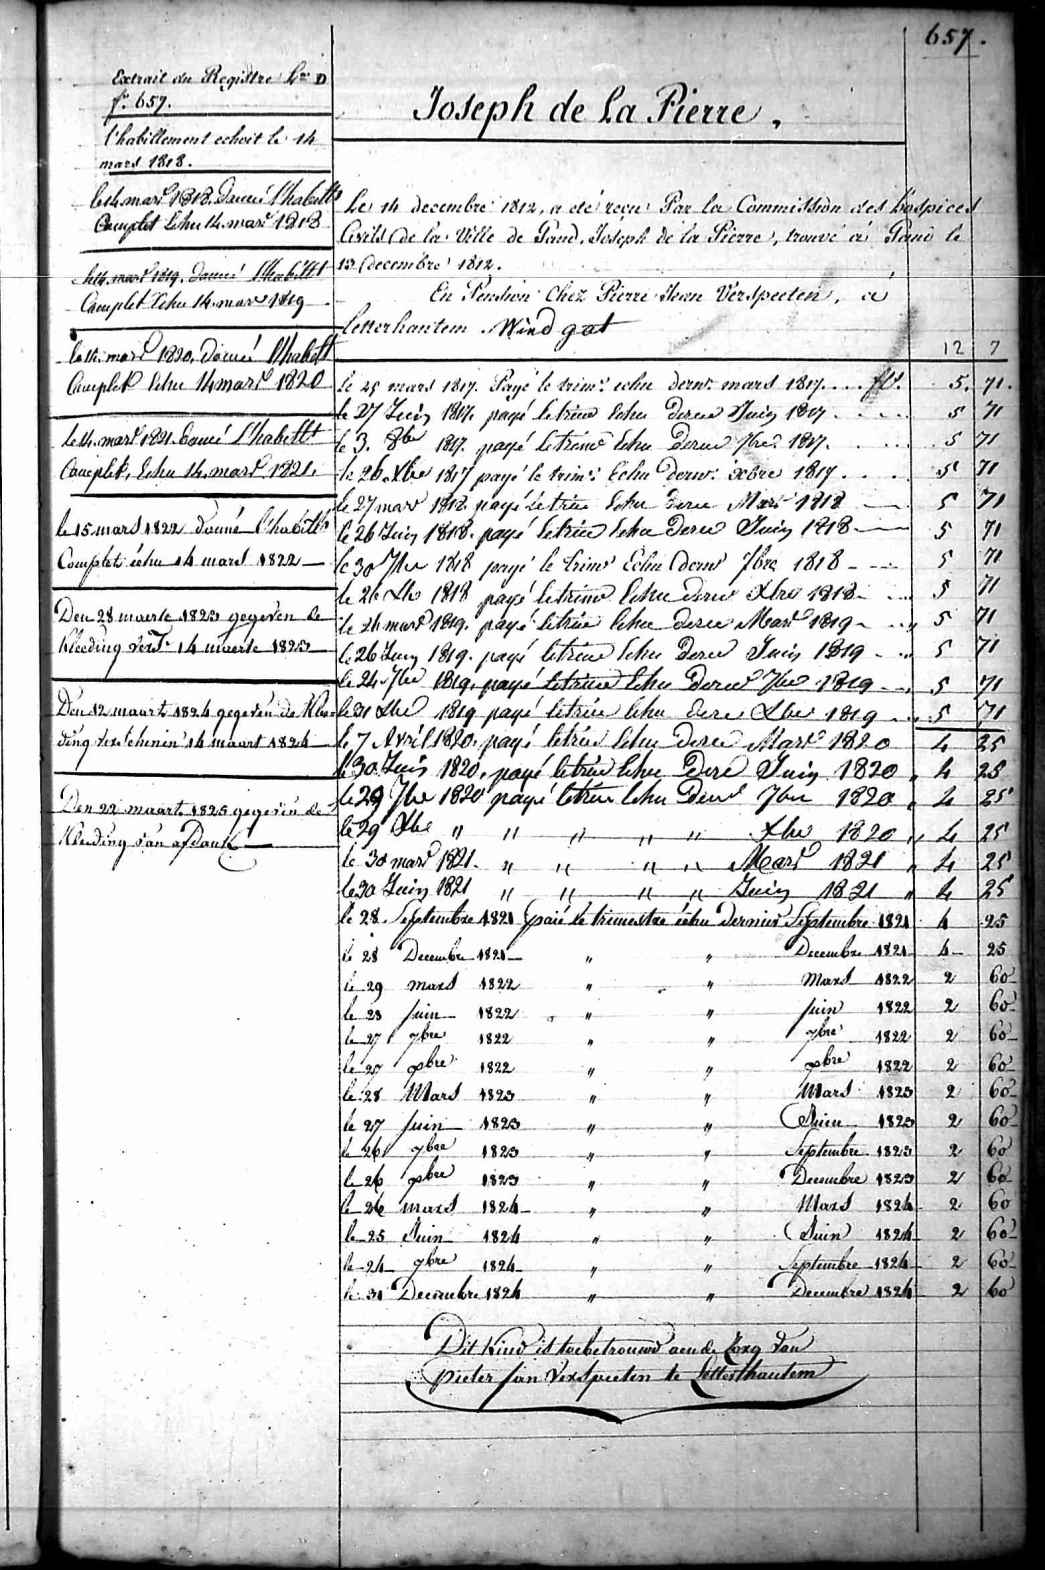 657.
Extrait du Registre Lra D
fo. 657.
l'habillement echoit le 14
mars 1818.
le 14 mars 1818. donné l'habillt
Complet Echu 14. mars 1818
le 14. mars 1819. donné l'habillt
Complet Echu 14. mars 1819
le 14. mars 1820, donné l'habillt
Complet Echu 14 mars 1820
le 14. mars 1821. donné l'habillt
Complet, Echu 14. mars 1821.
le 15 mars 1822 donné l'habillt
Complet échu 14 mars 1822
Den 28 maerte 1823 gegeven de
kleeding vert. 14 maerte 1823
Den 12 maart 1824 gegevén de klee-
ding verschenen 14 maart 1824
Den 22 maart 1825 gegevén de
kleeding van afdank
Joseph de La Pierre.
Le 14 decembre 1812, a été reçu Par la Commission des Hospices
Civils de la Ville de Gand, Joseph de la Pierre, trouvé à Gand le
13 decembre 1812.
En Pension Chez Pierre Jean Verspeeten, à
Letterhautem Windgat
12 7
le 25 mars 1817. Payé le trim: echu dernr. mars 1817. . . . 5. 71.
le 27 Juin 1817. payé letrim Echu dernr Juin 1817 . . . . 5 71
le 3. 8bre 1817. payé letrime Echu Dernr 7bre 1817. 5 71
le 26. Xbre 1817 payé le trim: Echu dernr. Xbre 1817 . . . . 5 71
le 27 mars 1818. payé Letrim Echu dernr Mars 1818 5 71
le 26 Juin 1818. payé letrim Echu Dernr Juin 1818 5 71
le 30 7bre 1818 payé le trim Echu dernr 7bre 1818 5 71
le 26 Xbre 1818 payé letrime Echu dernr Xbre 1818 5 71
le 24 mars 1819. payé letrim Echu dernr Mars 1819 5 71
le 26 Juin 1819. payé letrim Echu Dernr Juin 1819 5 71
le 24 7bre 1819. payé letrim Echu dernr 7bre 1819 5 71
le 31 Xbre 1819 payé letrim Echu dernr Xbre 1819 5 71
le 7 Avril 1820. payé letrim Echu dernr Mars 1820 4 25
le 30 Juin 1820. payé letrim Echu Dernr Juin 1820 " 4 25
le 29 7bre 1820 payé letrim Echu Dernr 7bre 1820 " 4 25
le 29 Xbre " " " " " Xbre 1820 " 4 25
le 30 mars 1821. " " " " Mars 1821 " 4 25
le 30 Juin 1821 " " " " Juin 1821 " 4 25
le 28. Septembre 1821 paié le trimestre échu dernier Septembre 1821 4 25
le 28 Decembre 1821 " " Decembre 1821 4 25
le 29 mars 1822 " " Mars 1822 2 60
le 28 juin 1822 " " juin 1822 2 60
le 27 7bre 1822 " " 7bre 1822 2 60
le 27 Xbre 1822 " " Xbre 1822 2 60
le 28 Mars 1823 " " Mars 1823 2 60
le 27 juin 1823 " " Juin 1823 2 60
le 26 7bre 1823 " " Septembre 1823 2 60
le 26 Xbre 1823 " " Decembre 1823 2 60
le 26 mars 1824 " " Mars 1824 2 60
le 25 Juin 1824 " " Juin 1824 2 60
le 24 7bre 1824 " " Septembre 1824 2 60
le 31 Decembre 1824 " " Decembre 1824 2 60
Dit kind is toebetrouwd aen de Zorg van
pieter jan verspeeten te Letterhautem